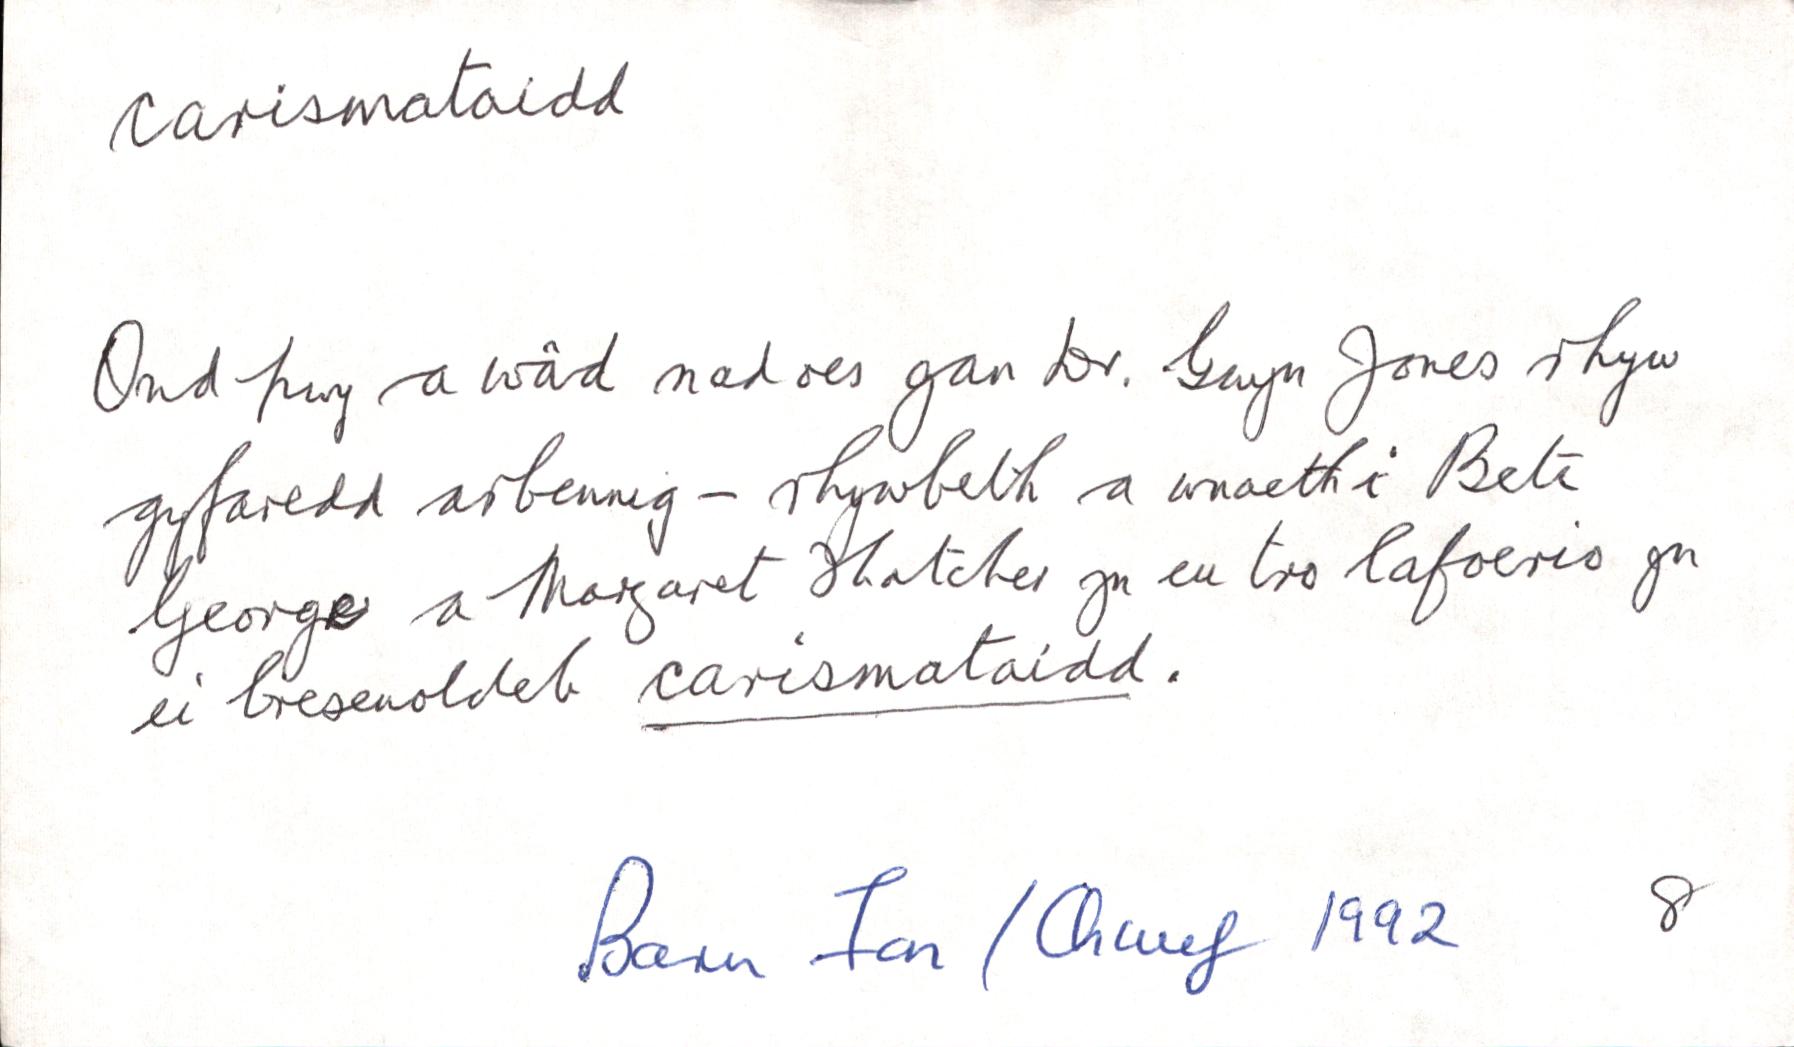 carismataidd
Ond pwy a wâd nad oes gan Dr. Gwyn Jones rhyw
gyfaredd arbennig – rhywbeth a wnaeth i Beti
George a Margaret Thatcher yn eu tro lafoerio yn
ei bresenoldeb carismataidd.
Barn Ion / Chwef 1992 8